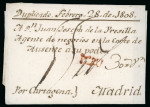 Duplicado. Febrero 28. de 1808.
A Dn. Juan Josef de la Presilla
Agente de negocios en la Corte de
Ausente a su poder
Por Cartagena.
Madrid.